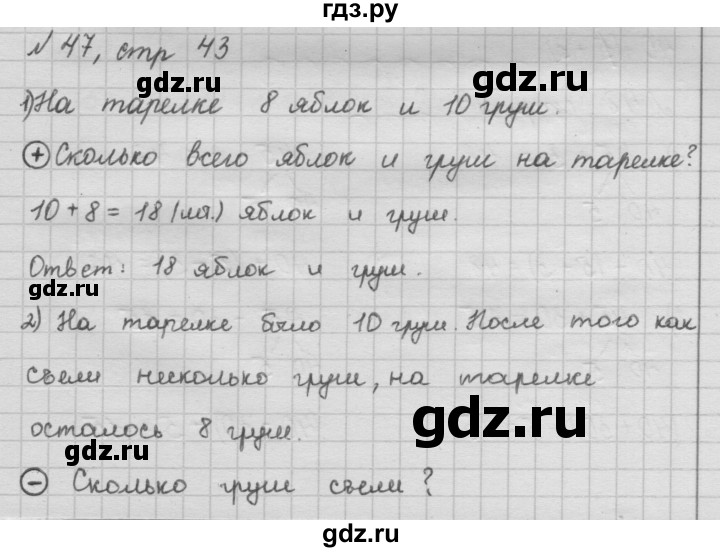 гдз.ру
№ 47, стр 43
gdz.ru
1) На тарелке 8 яблок и 10 груш.
gdz.ru
⊕ Сколько всего яблок и груш на тарелке?
10 + 8 = 18 (шт.) яблок и груш.
gdz.ru
Ответ: 18 яблок и груш.
gdz.ru
2) На тарелке было 10 груш. После того как
съели несколько груш, на тарелке
gdz.ru
осталось 8 груш.
gdz.ru
⊖ Сколько груш съели?
gdz.ru